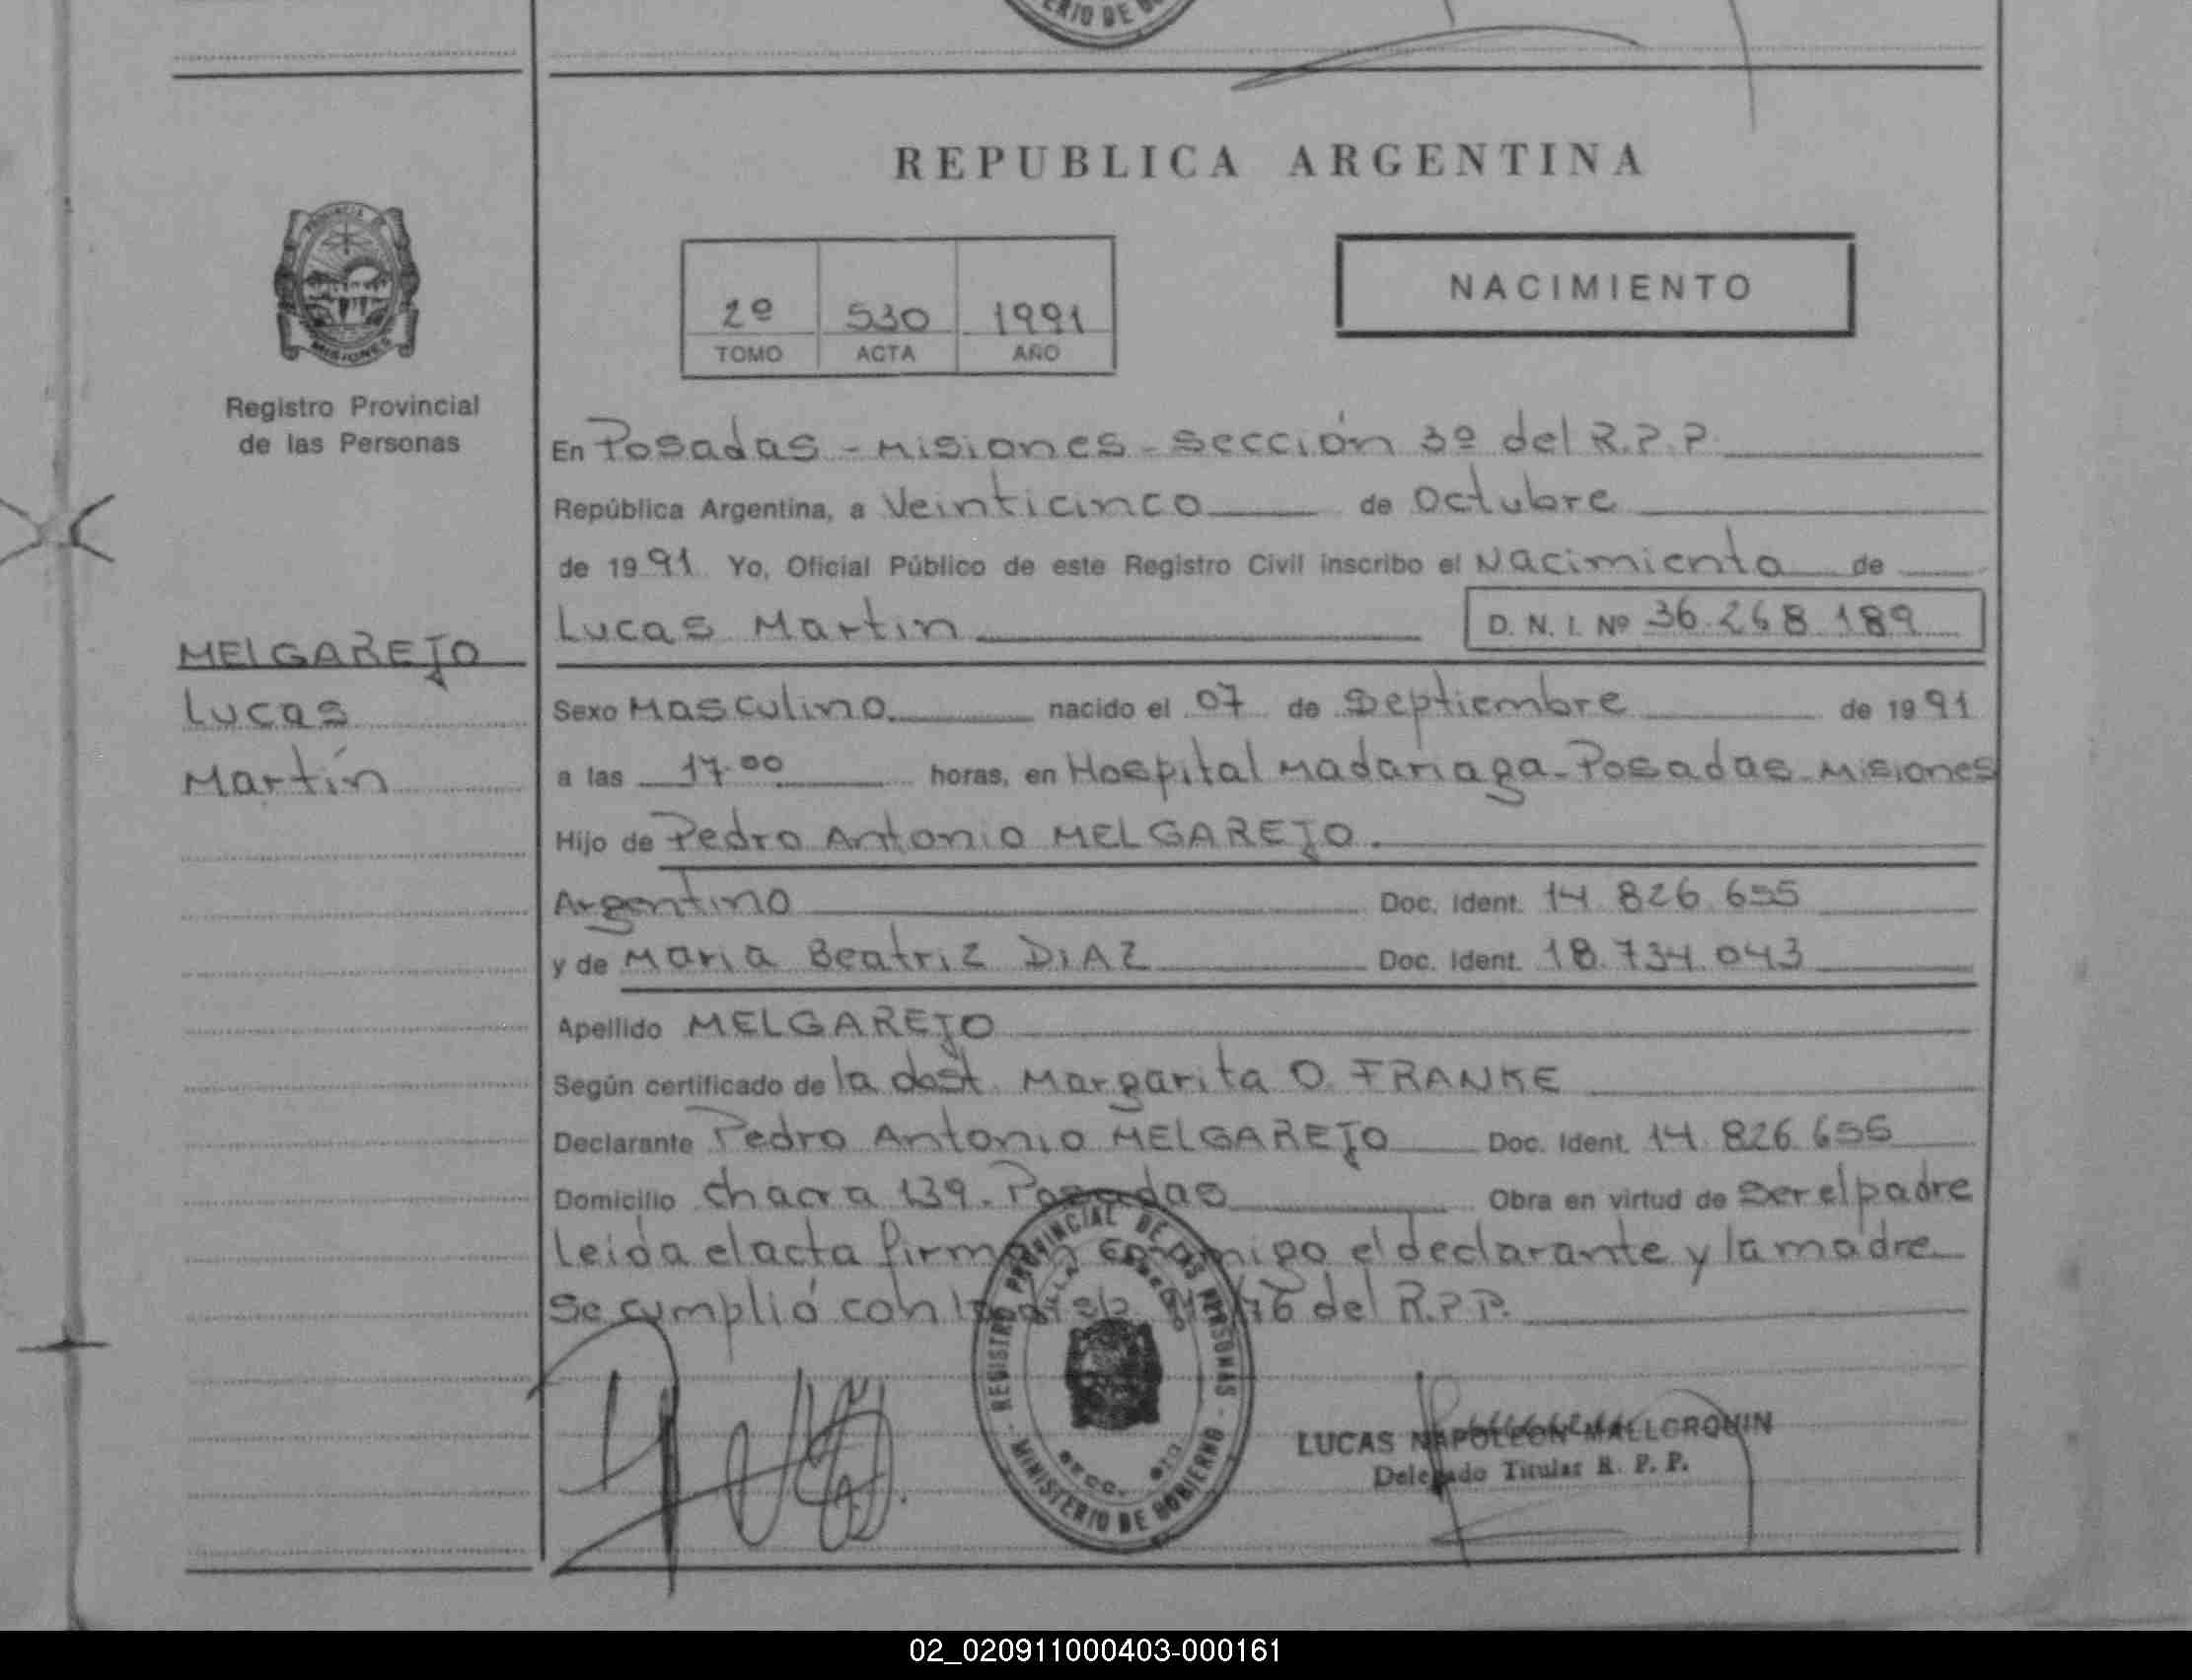 ERIO DE
REPUBLICA ARGENTINA
PROVINCIA
MISIONES
Registro Provincial
de las Personas
2º 530 1991
TOMO ACTA AÑO
NACIMIENTO
En Posadas - Misiones - Sección 3º del R.P.P.
República Argentina, a Veinticinco de Octubre
de 1991 Yo, Oficial Público de este Registro Civil inscribo el Nacimiento de
Lucas Martin D. N. I. Nº 36.268.189
MELGAREJO
Lucas
Martín
Sexo Masculino nacido el 07 de Septiembre de 1991
a las 17.00 horas, en Hospital Madariaga - Posadas - Misiones
Hijo de Pedro Antonio MELGAREJO.
Argentino Doc. Ident. 14.826.655
y de Maria Beatriz DIAZ Doc. Ident. 18.734.043
Apellido MELGAREJO
Según certificado de la dost. Margarita O. FRANKE
Declarante Pedro Antonio MELGAREJO Doc. Ident. 14.826.655
Domicilio Chacra 139 - Posadas Obra en virtud de Ser el padre
Leida el acta firman conmigo el declarante y la madre
Se cumplió con 76 del R.P.P.
REGISTRO PROVINCIAL DE LAS PERSONAS
MINISTERIO DE GOBIERNO
LUCAS NAPOLEON MALLORQUIN
Delegado Titular R. P. P.
02_020911000403-000161